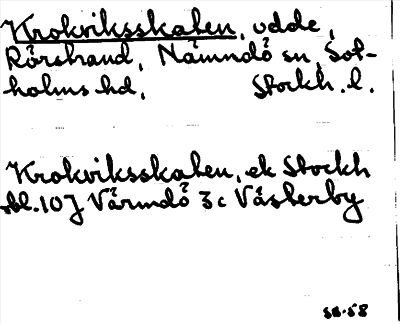 Krokviksskaten, udde,
Rörstrand, Nämndö sn, Sot-
holms hd, Stockh. l.
Krokviksskaten, ek Stockh
bl. 107 Värmdö 3c Västerby
SB-58